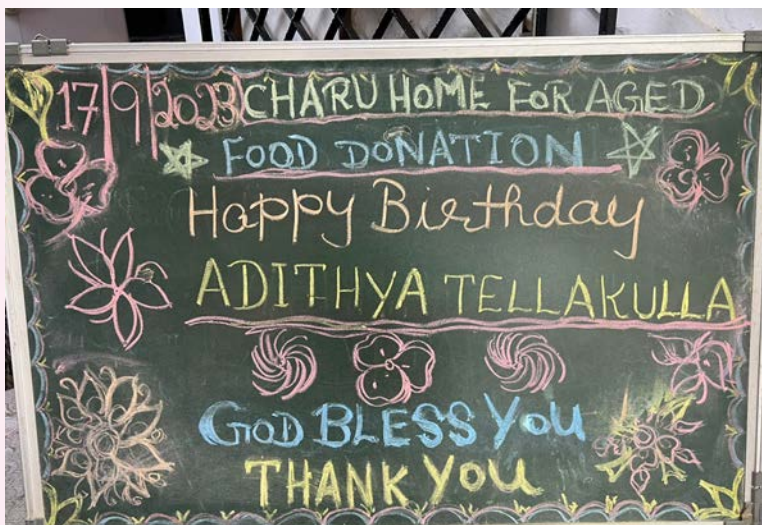 17/9/2023 CHARU HOME FOR AGED
FOOD DONATION
Happy Birthday
ADITHYA TELLAKULLA
GOD BLESS YOU
THANK YOU